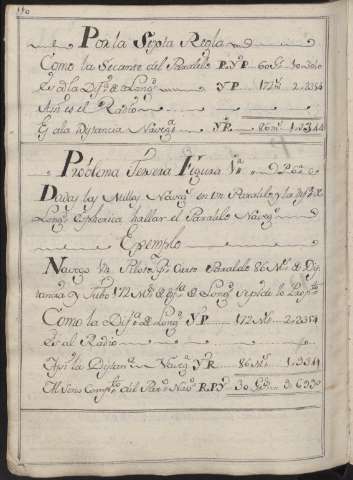 110
Por la Sexta Regla
Como la Secante del Paralelo P.Y.P. 60 Gs 10.3010
Es á la Dif.ª de Long. Y P 172 Ms 2.2355
Asi es el Radio
Es á la Distancia Naveg.ª Y P. 86 Ms 1.9344
Problema Tercero Figura 1ª
Dadas las Millas Naveg.s en un Paralelo y la Dif.ª de
Long. hallar el Paralelo Naveg.º
Exemplo
Navegó un Piloto por cierto Paralelo 86 Ms de Dis
tancia y hubo 172 Ms de Dif.ª de Long. se pide lo Prop.to
Como la Dif.ª de Long. Y P 172 Ms 2.2355
Es al Radio
Asi la Distan.ª Naveg.ª Y P 86 Ms 1.9344
Al Seno Comp.to del Par.º Nav.º R.P.Y. 30 Gs 9.6990